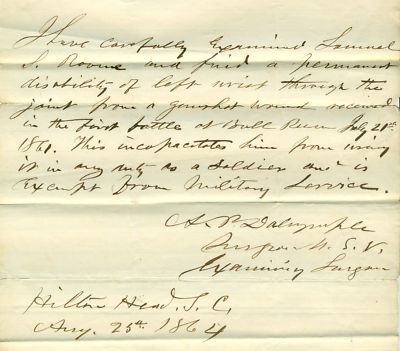 I have carefully Examined Samuel
S. Roome and find a permanent
disability of left wrist through the
joint from a gunshot wound received
in the first battle at Bull Run July 21st
1861. This incapacitates him from using
it in any duty as a soldier and is
Exempt from Military Service.
A. P. Dalrymple
Surgeon U. S. V.
Examining Surgeon
Hilton Head. S. C.
Aug. 25th 1864